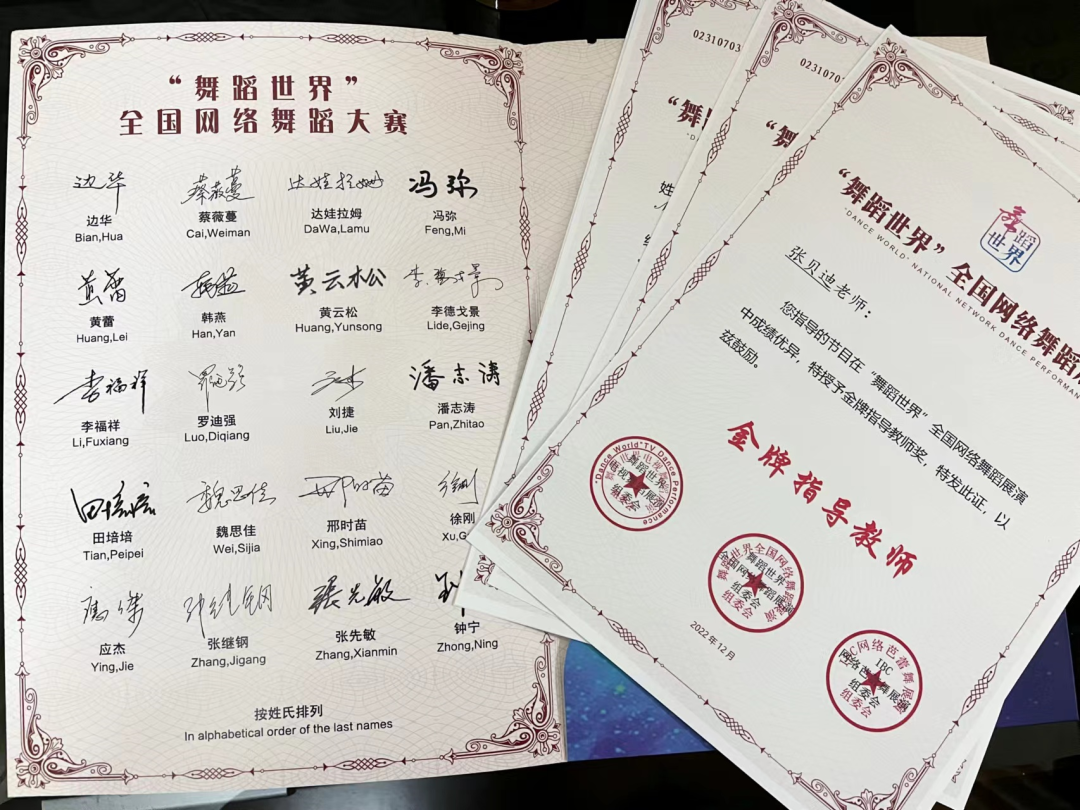 “舞蹈世界”
全国网络舞蹈大赛
边华 蔡薇蔓 达娃拉姆 冯弥
边华 蔡薇蔓 达娃拉姆 冯弥
Bian,Hua Cai,Weiman DaWa,Lamu Feng,Mi
黄蕾 韩燕 黄云松 李德戈景
黄蕾 韩燕 黄云松 李德戈景
Huang,Lei Han,Yan Huang,Yunsong Lide,Gejing
李福祥 罗迪强 刘捷 潘志涛
李福祥 罗迪强 刘捷 潘志涛
Li,Fuxiang Luo,Diqiang Liu,Jie Pan,Zhitao
田培培 魏思佳 邢时苗 徐刚
田培培 魏思佳 邢时苗 徐刚
Tian,Peipei Wei,Sijia Xing,Shimiao Xu,G
应杰 张继钢 张先敏
应杰 张继钢 张先敏 钟宁
Ying,Jie Zhang,Jigang Zhang,Xianmin Zhong,Ning
按姓氏排列
In alphabetical order of the last names
02310703
“舞
姓
0231070
“舞
舞蹈
世界
“舞蹈世界”全国网络舞蹈
"DANCE WORLD" NATIONAL NETWORK DANCE PERFORMAN
张贝迪老师：
您指导的节目在“舞蹈世界”全国网络舞蹈展演
中成绩优异，特授予金牌指导教师奖，特发此证，以
兹鼓励。
金牌指导教师
"Dance World"TV Dance Performance
舞蹈世界
电视舞蹈展演
组委会
舞蹈世界全国网络舞蹈展演
舞蹈世界
全国网络舞蹈展演
组委会
组委会
2022年12月
IBC网络芭蕾舞展演
IBC
网络芭蕾舞展演
组委会
组委会